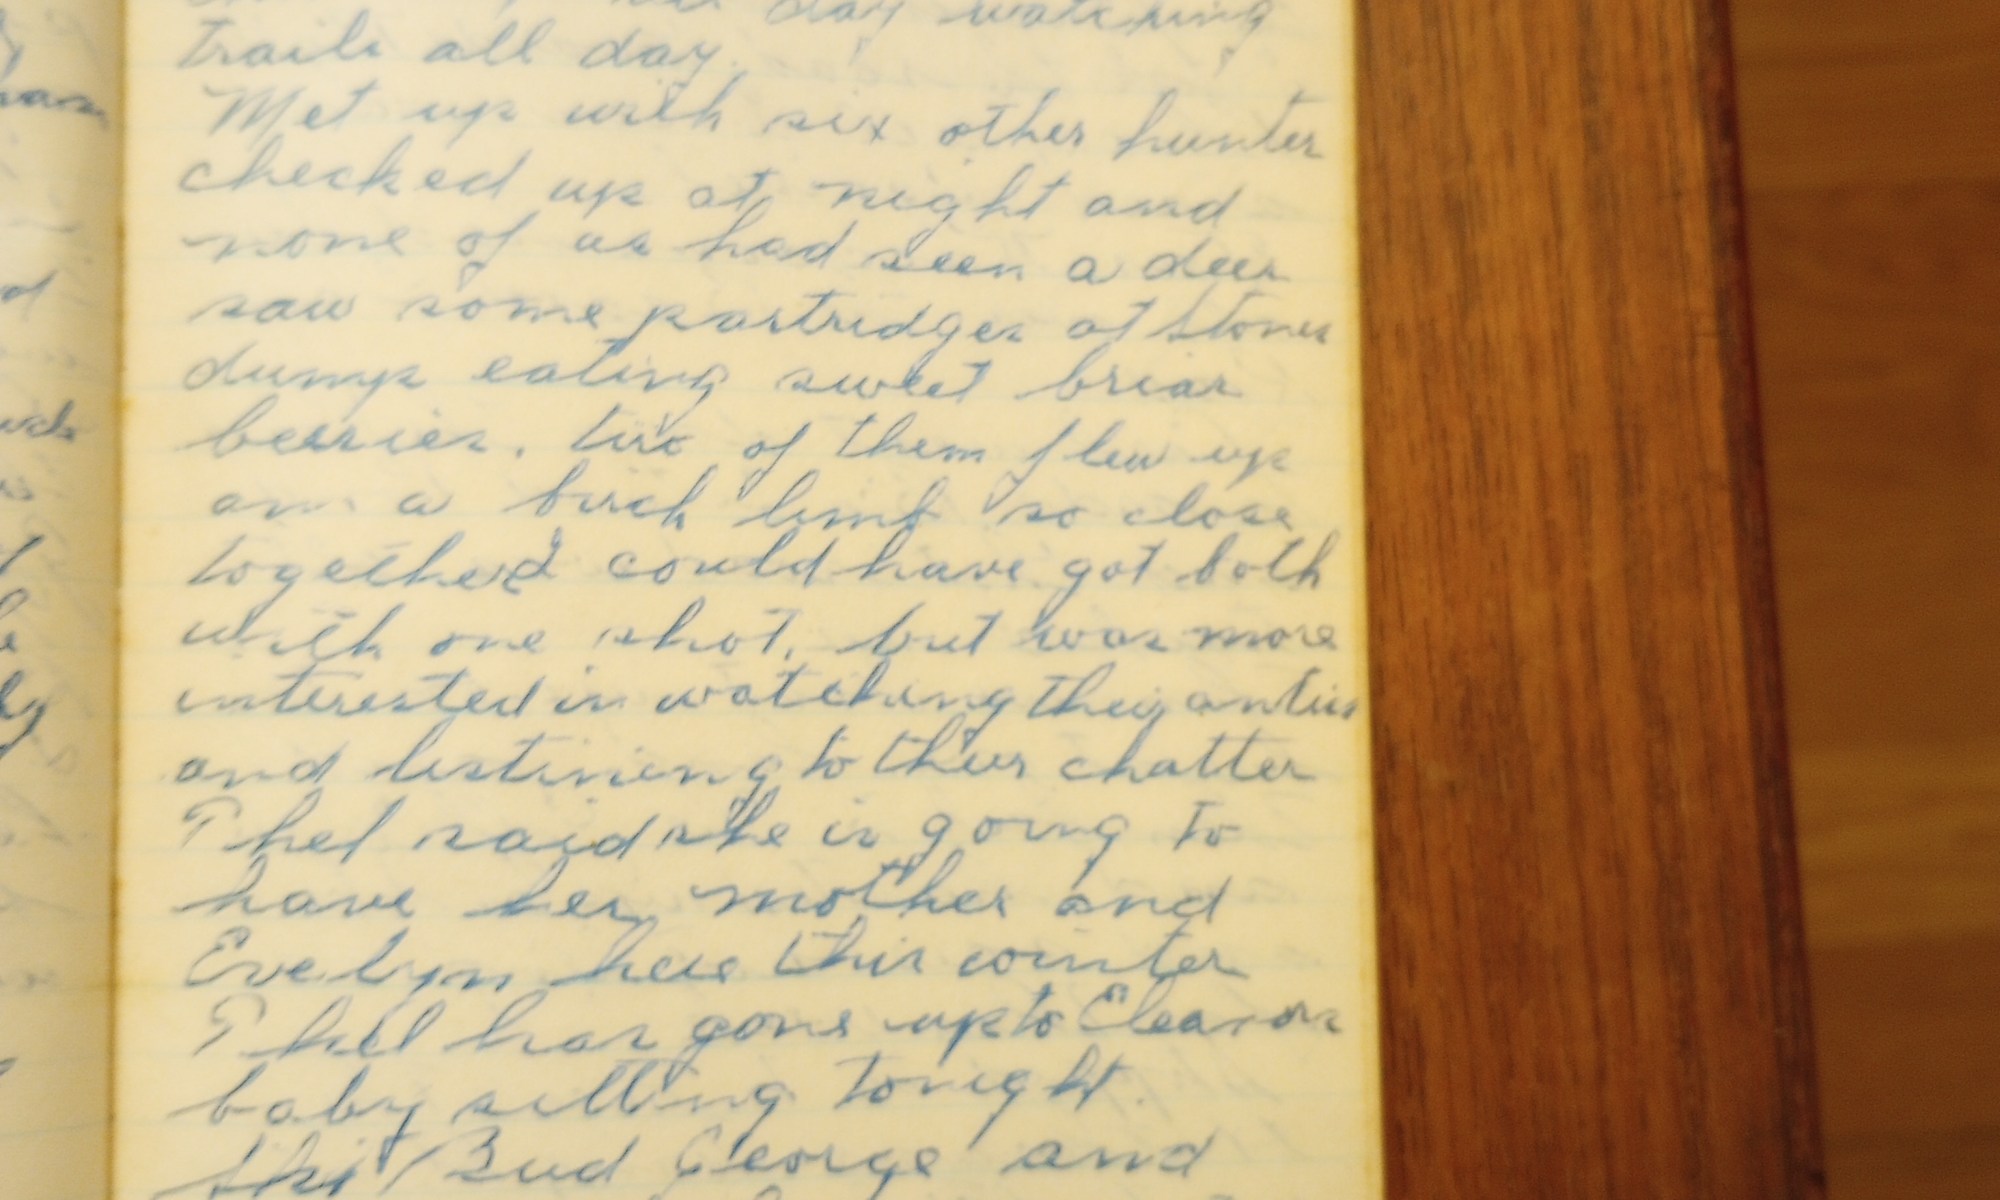 day watching
trails all day.
Met up with six other hunter
checked up at night and
none of us had seen a deer
saw some partridges at Stones
dump eating sweet briar
berries. two of them flew up
on a birch limb so close
together I could have got both
with one shot, but was more
interested in watching their antics
and listining to their chatter
Thel said she is going to
have her mother and
Evelyn here this winter
Thel has gone up to Eleanors
baby sitting tonight.
Bud George and